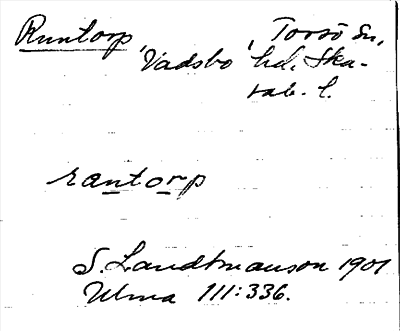 Runtorp, Torsö sn,
Vadsbo hd, Ska-
rab. l.
rantorp
S. Landtmanson 1901
Ulma 111:336.